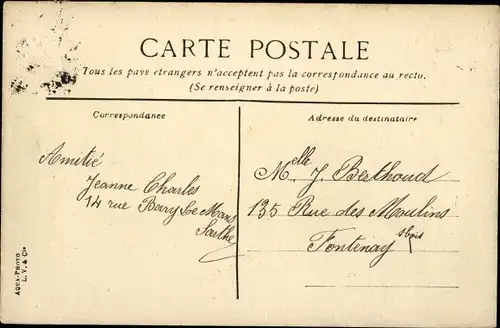 CARTE POSTALE
Tous les pays etrangers n'acceptent pas la correspondance au recto.
(Se renseigner à la poste)
Correspondance
Adresse du destinataire
Amitié
Jeanne Charles
14 rue Bary Le Mans
Sarthe
Melle J. Berthoud
135 Rue des Moulins
Fontenay s/bois
AQUA-PHOTO
L. V. & Cie